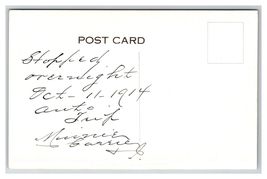 POST CARD
Stopped
overnight
Oct-11-1914
Auto
Trip
Minnie